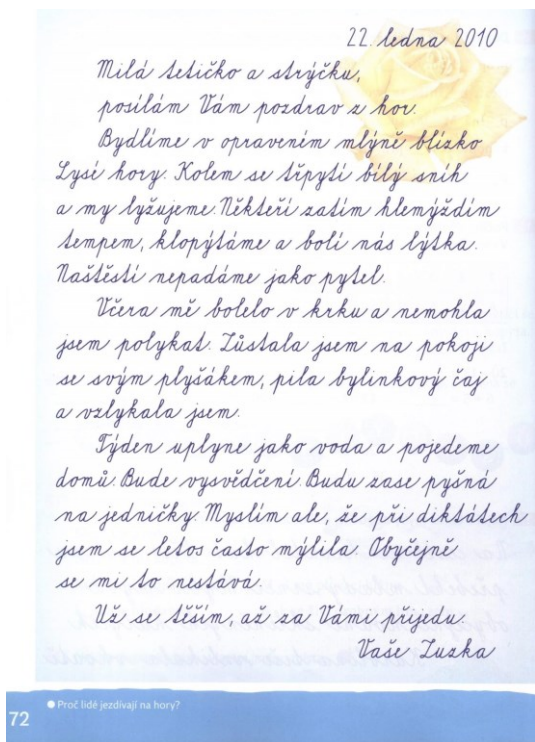 22. ledna 2010
Milá tetičko a strýčku,
posílám Vám pozdrav z hor.
Bydlíme v opraveném mlýně blízko
Lysé hory. Kolem se třpytí bílý sníh
a my lyžujeme. Někteří zatím hlemýždím
tempem, klopýtáme a bolí nás lýtka.
Naštěstí nepadáme jako pytel.
Včera mě bolelo v krku a nemohla
jsem polykat. Zůstala jsem na pokoji
se svým plyšákem, pila bylinkový čaj
a vzlykala jsem.
Týden uplyne jako voda a pojedeme
domů. Bude vysvědčení. Budu zase pyšná
na jedničky. Myslím ale, že při diktátech
jsem se letos často mýlila. Obyčejně
se mi to nestává.
Už se těším, až za Vámi přijedu.
Vaše Zuzka
● Proč lidé jezdívají na hory?
72